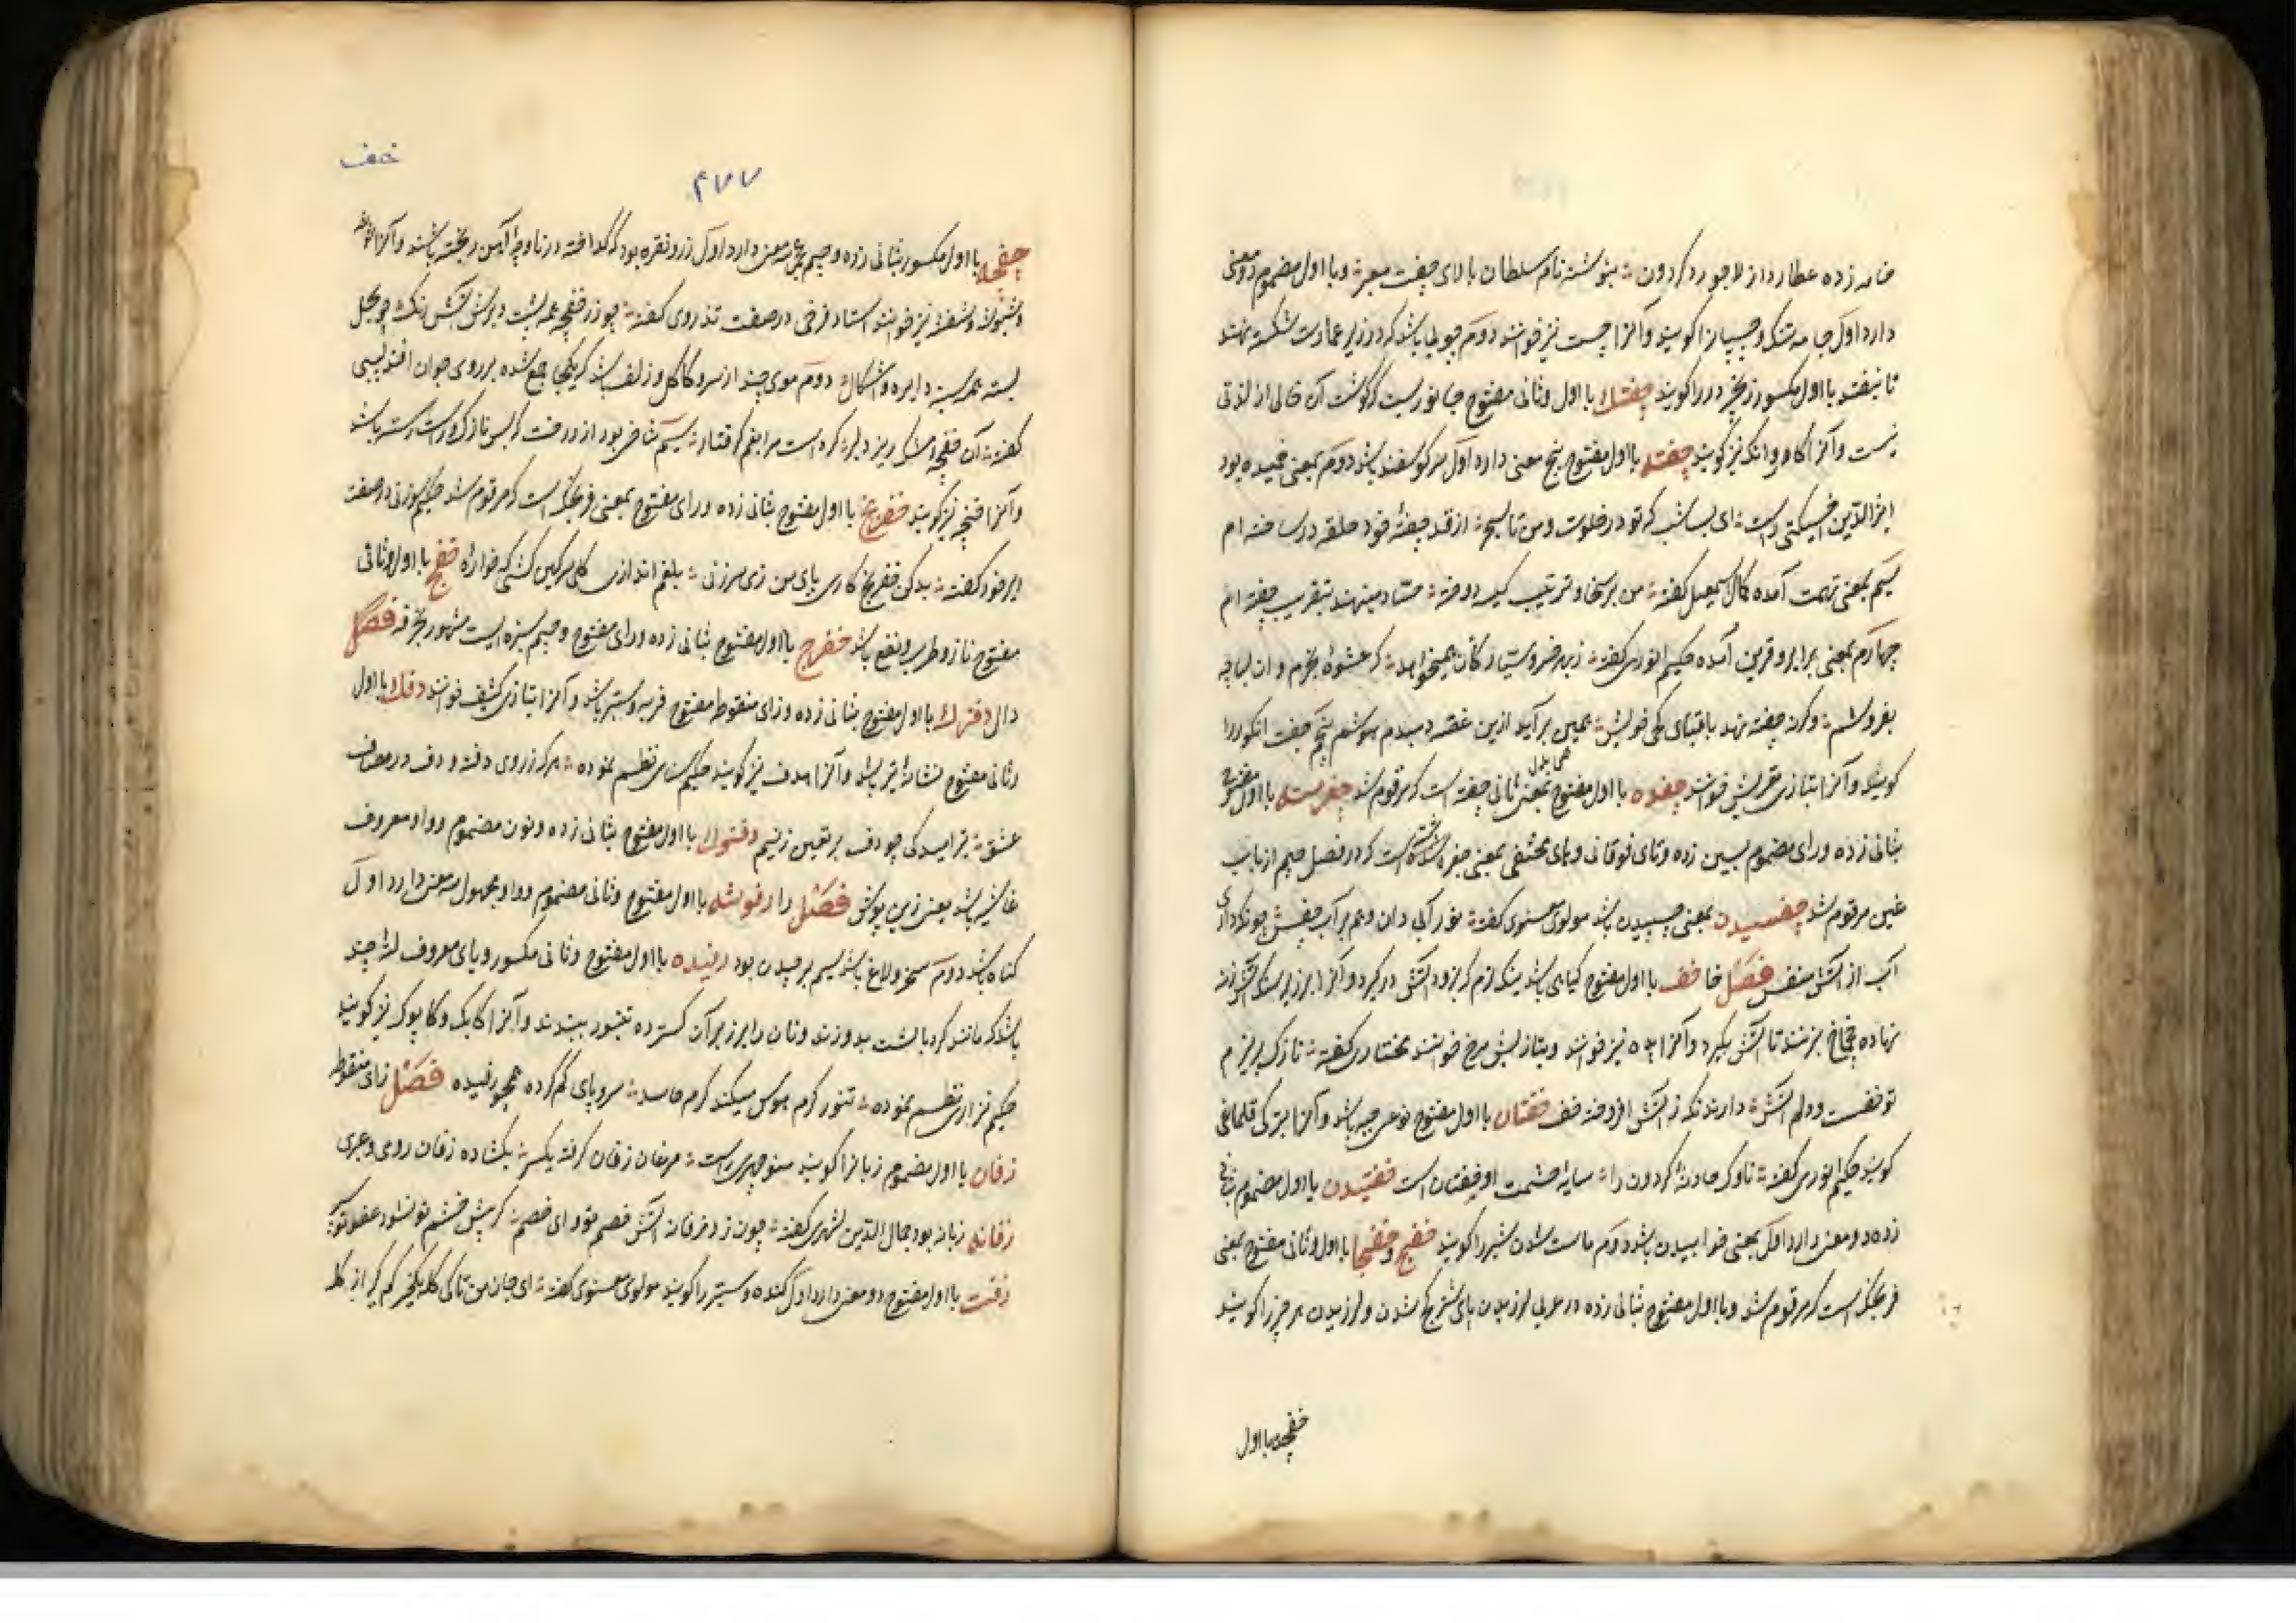 خامه زده عطارد از لاجورد گردون نبوشته نام سلطان بالای چفت میعره و با اول مضموم دو معنی
دارد اول جامه تنک و چسپان را گویند و آنرا چست نیز خوانند دوم چوبی باشد که در زیر عمارت شکسته نهند
تا نیفتد با اول مکسور زنجیر در را گویند چفتک با اول و ثانی مفتوح جانوریست که گوشت آن خالی از لذتی
نیست و آنرا کاروانک نیز گویند چفته با اول مفتوح پنج معنی دارد اول سر گوسفند باشد دوم بمعنی خمیده بود
اثیرالدین اخسیکتی راست ای بسا شب که تو در خلوت و من تا بسحر از قد چفتهٔ خود حلقهٔ در ساخته ام
سیم بمعنی تهمت آمده کمال اسمعیل گفته من برسخا و ترتیب کیسه دوخته
چهارم بمعنی برابر و قرین آمده حکیم انوری گفته زهره خر و ستارکان میخواهد که عشوه بخرم و ان لباچه
بفروشم وگرنه چفته نهد باقتبای کی خویش همین برآید ازین غصه دمبدم هوشم پنجم چفت انگور را
گویند و آنرا بتازی عریش خوانند چفده با اول مفتوح بمعنی ثانی چفته است که مرقوم شد چفرسته با اول مفتوح
بثانی زده و رای مضموم بسین زده و تای فوقانی و های مختفی بمعنی جغرشته است که در فصل جیم از باب
غین مرقوم شد چفسیدن بمعنی چسپیدن باشد مولوی معنوی گفته نور آبی دان و هم بر آب چفس چونکه داری
آب از آتش مترس فصل خا خف با اول مفتوح گیاهی باشد نرم که بزود آتش درگیرد و آنرا بر زیر سنگ آتش زنه
نهاده چخماخ بزنند تا آتش بگیرد و آنرا پده نیز خوانند و بتازیش مرخ خوانند مختاری گفته نازک بریزم
تو خفست و دلم آتش دارند نکه ز آتش افروخته خف خفتان با اول مفتوح نوعی جبه باشد و آنرا بترکی قلماقی
گویند حکیم انوری گفته ناوک حادثهٔ گردون را سایهٔ حشمت او خفتان است خفتیدن با اول مضموم بثانی
زده دو معنی دارد اول بمعنی خوابیدن باشد دوم ماست شدن شیر را گویند خفج و خفجا با اول و ثانی مفتوح بمعنی
فرنجک است که مرقوم شد و با اول مفتوح بثانی زده در عربی لرزیدن پای شتر و کج شدن و لرزیدن هر چیز را گویند
خفچه با اول
خف
۴۷۷
خفچه با اول مکسور بثانی زده و جیم عجمی سه معنی دارد اول زر و نقره بود که گداخته در ناوچهٔ آهن ریخته باشند و آنرا
و شبوشه و شفشه نیز خوانند استاد فرخی در صفت تذروی گفته چو زر خفچه همه پشت و برش آتش رنگ چو بجل
بسته همه سینه دایره و اشکال دوم موی چند از سر و کاکل و زلف باشد که یکجا جمع شده بر روی جوان افتد لبیبی
گفته آن خفچه مشک ریز دلبر کرده است مرا بغم گرفتار سیم شاخی بود از درخت که بس نازک و راست رسته باشد
و آنرا خنچه نیز گویند خفریج با اول مفتوح بثانی زده و رای مفتوح بمعنی فرنجک است که مرقوم شد حکیم سوزنی در صفت
ایر خود گفته بدکن خفریج کاری پای من زی سرزنی
مفتوح ناز و طرب و نفع باشد خفرج با اول مفتوح بثانی زده و رای مفتوح و جیم سبزه ایست مشهور بخرفه فصل
دال دفزک با اول مفتوح بثانی زده و زای منقوط مفتوح فربه و ستبر باشد و آنرا بتازی کثیف خوانند دفک با اول
و ثانی مفتوح نشانهٔ تیر باشد و آنرا هدف نیز گویند حکیم سنائی نظم نموده هر که ز روی دفه و دف در مصاف
عشق تیر ایسد کی چو دف بر یقین زنیم دفنوک با اول مفتوح بثانی زده و نون مضموم و واو معروف
غاشیه باشد یعنی زین پوش فصل را رفوشه با اول مفتوح و ثانی مضموم و واو مجهول سه معنی دارد اول
گناه باشد دوم سخر و لاغ باشد سیم برچیدن بود رفیده با اول مفتوح و ثانی مکسور و یای معروف لته چند
باشد که مانند گرد بالشت بدوزند و نان را بر زبر آن گسترده بتنور ببندند و آنرا کابک و کاپوک نیز گویند
حکیم نزاری نظم نموده تنور گرم هوس میکند گرم حاسد سر و پای گم کرده همچو رفیده فصل زای منقوط
زفان با اول مضموم زبان را گویند منوچهری راست مرغان زفان گرفته یکسر بکشاده زفان رومی و عبری
زفانه زبانه بود جمال الدین شهری گفته چون زد زفانه آتش خصم تو وای خصم گر پیش خشم تو نشود عفو تو
زفت با اول مفتوح دو معنی دارد اول کنده و سبتر را گویند مولوی معنوی گفته ای جان من تا کی گله یکخر کم گیر از گله